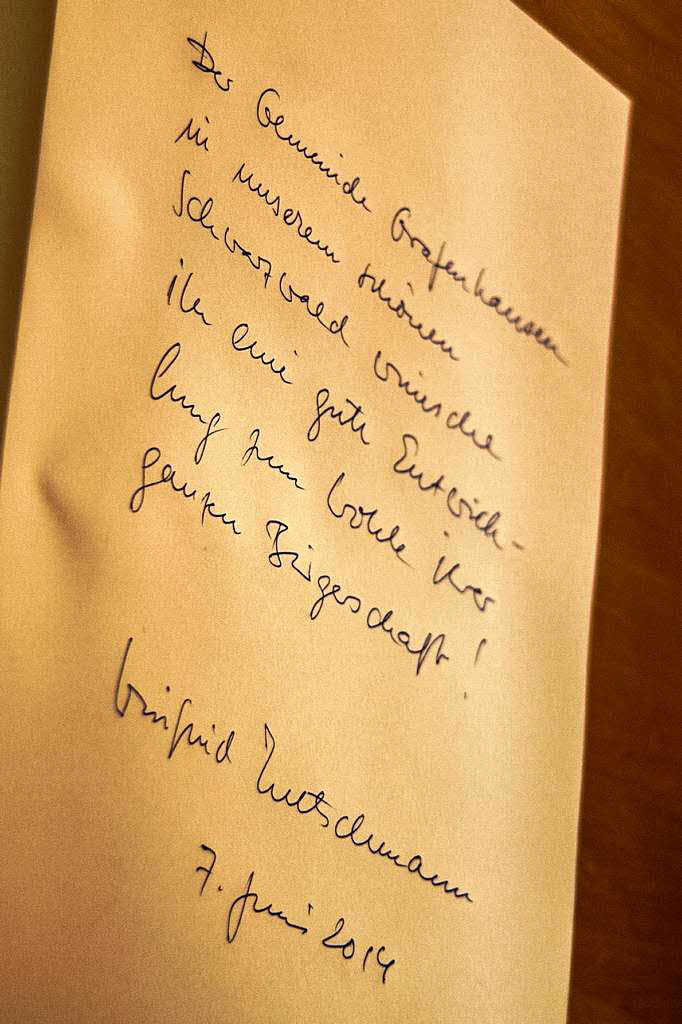 Der Gemeinde Grafenhausen
in unserem schönen
Schwarzwald wünsche
ich eine gute Entwick-
lung zum Wohle ihrer
ganzen Bürgerschaft!
Winfried Kretschmann
7. Juni 2014